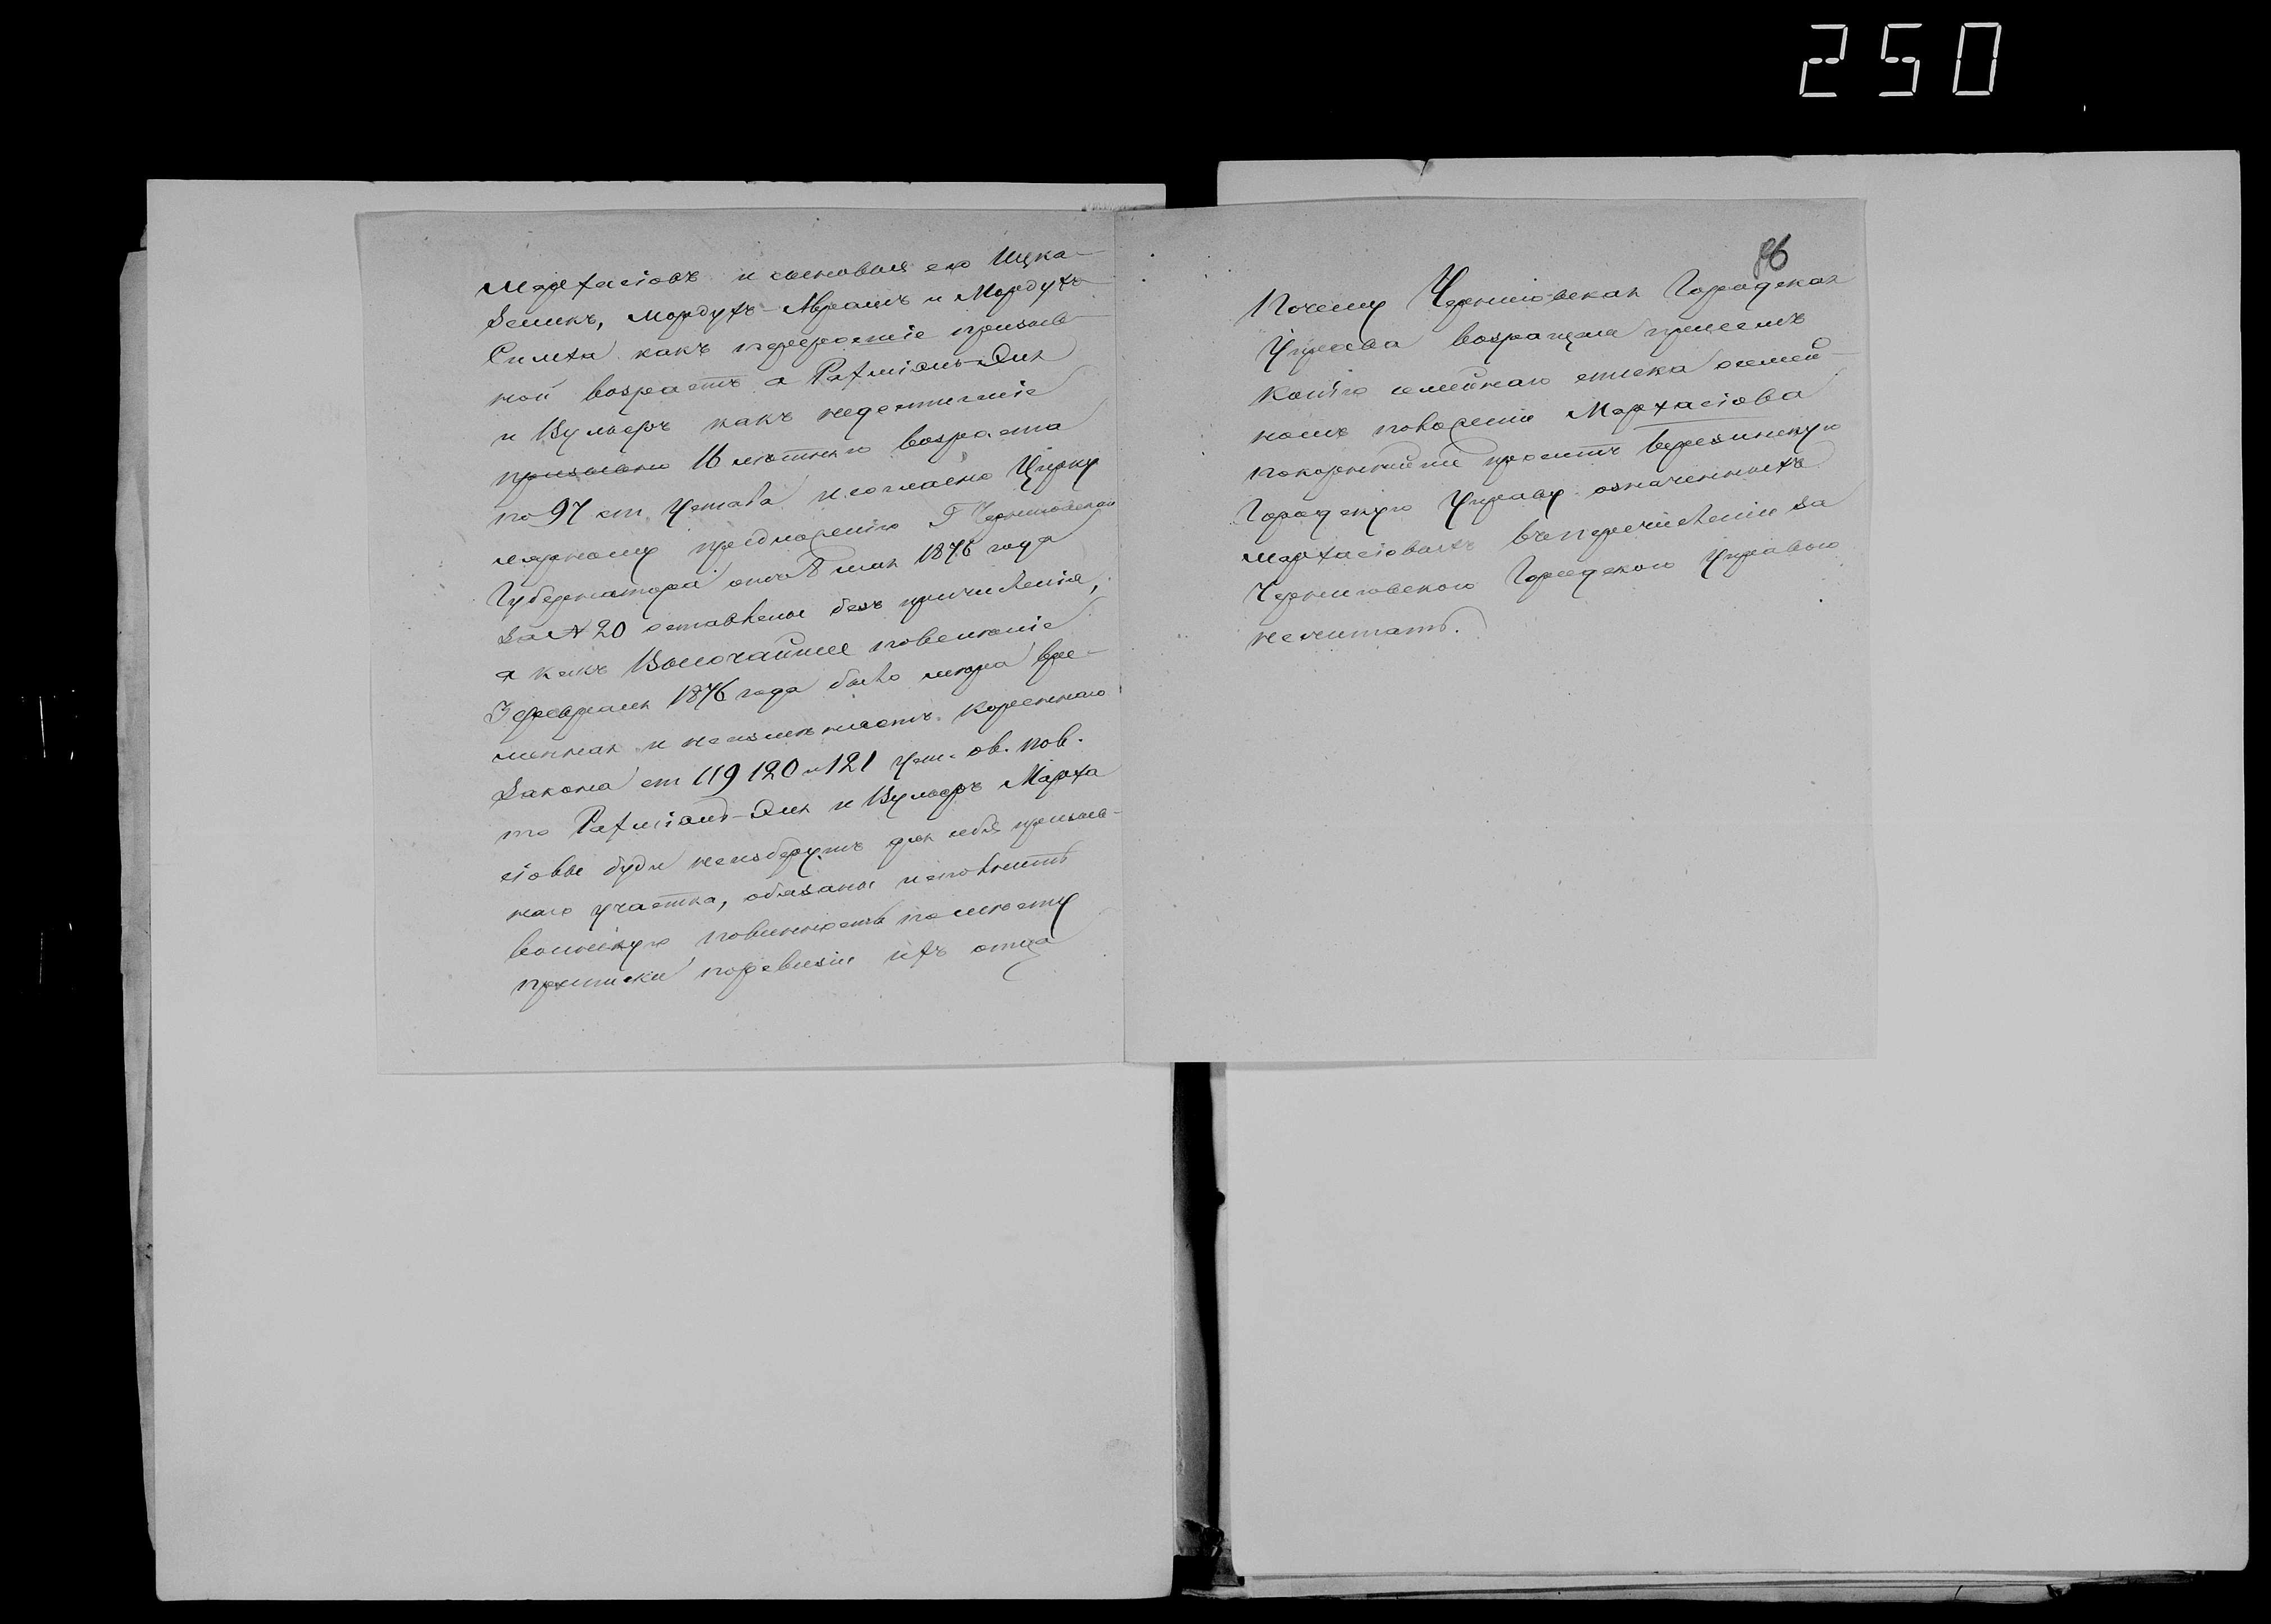 250
Мархасiовъ и сыновья его Ицка-
Зеликъ, Мордухъ-Абрамъ и Мордухъ
Симха какъ переросшiе призыв-
ной возрастъ а Рахмiэль-Эля
и Вульфъ какъ недостигшiе
призывно 16 лѣтняго возраста
по 97 ст. Устава и согласно Цирку
лярному предложенiю Г Черниговскаго
Губернатора отъ 8 мая 1876 года
за № 20 оставлены безъ причисленiя,
а какъ Высочайшее повелѣнiе
3 февраля 1876 года было мѣра вре-
менная и неизмѣняетъ кореннаго
Закона ст 119 120 и 121 Уст. ов. пов.
то Рахмiэль-Эля и Вульфъ Марха
сiовы буде неизберутъ для себя призыв-
наго участка, обязаны исполнить
воинскую повинность по мѣсту
приписки поревизiи ихъ отца
86
Почему Черниговская Городская
Управа возращая присемъ
копiю семейнаго списка осемей-
номъ положенiи Мархасiова
покорнѣйше проситъ березинскую
Городскую Управу означенныхъ
Мархасiовыхъ въперечисленiи за
Черниговскою Городскою Управою
несчитать.